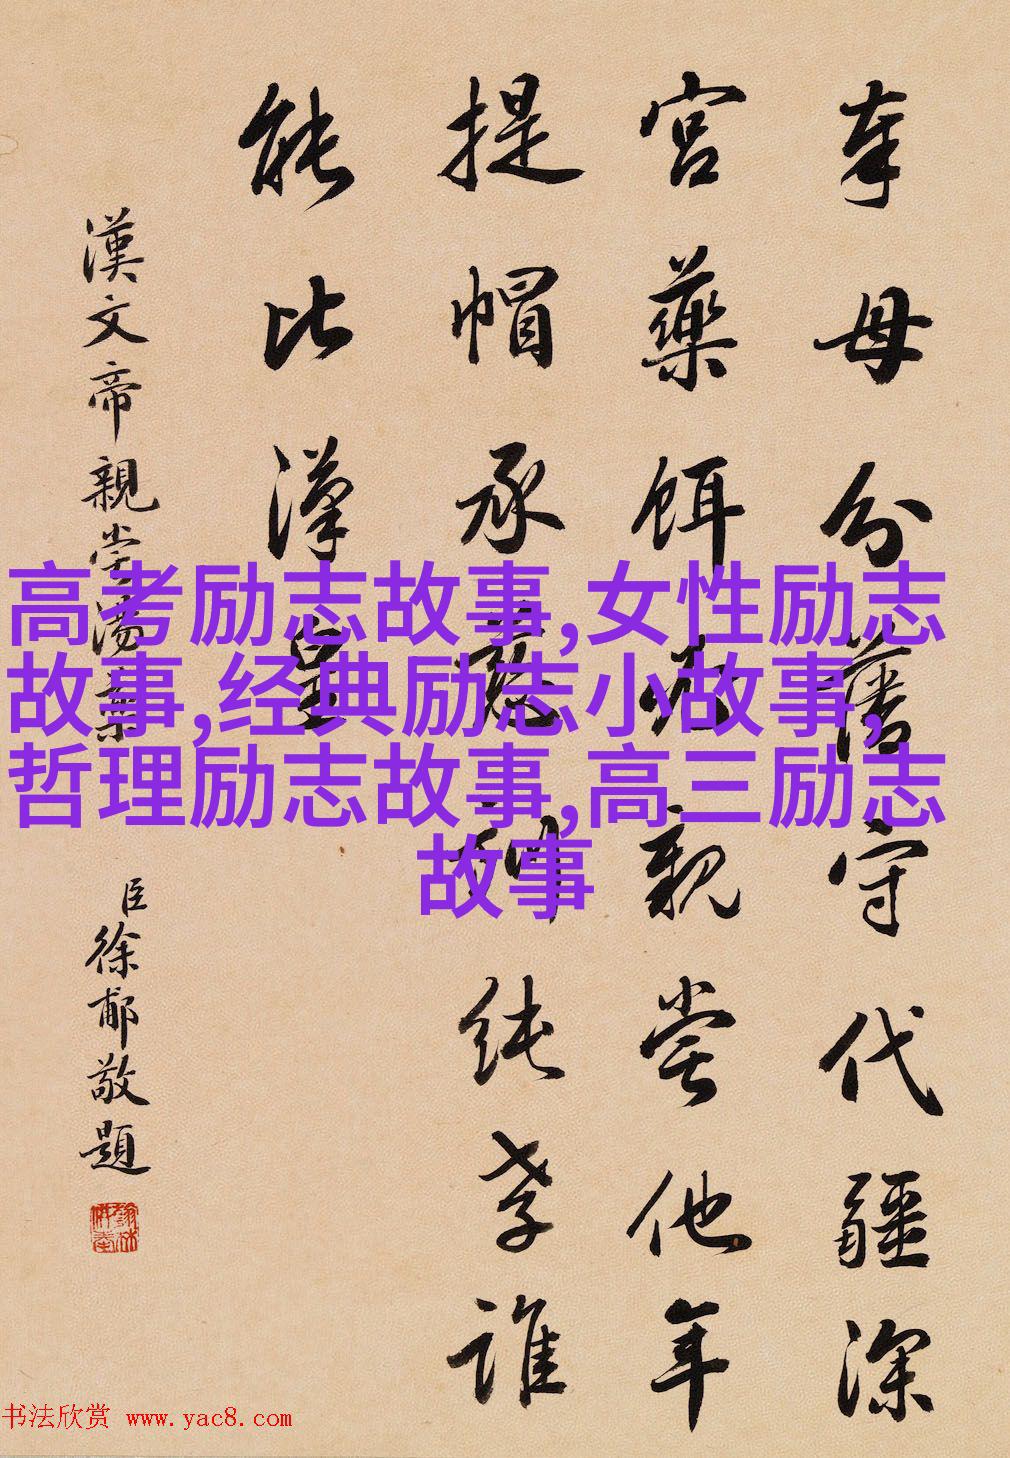 奉母分藩守代疆深
宮藥餌親嘗他年
提帽承慈訓純孝誰
能比漢皇
漢文帝親嘗湯藥
臣徐郙敬題
高考励志故事,女性励志
故事,经典励志小故事,
哲理励志故事,高三励志
故事
书法欣赏 www.yac8.com